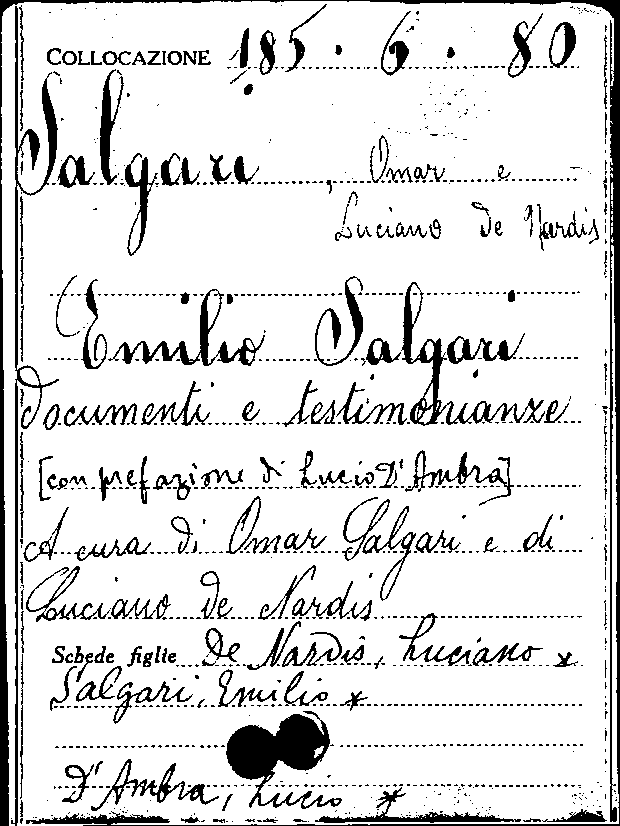 COLLOCAZIONE 185.6.80
Salgari, Omar e -
Luciano de Nardis
Emilio Salgari
documenti e testimonianze
[con prefazione di Lucio D'Ambra]
A cura di Omar Salgari e di
Luciano de Nardis
Schede figlie De Nardis, Luciano *
Salgari, Emilio *
D'Ambra, Lucio *